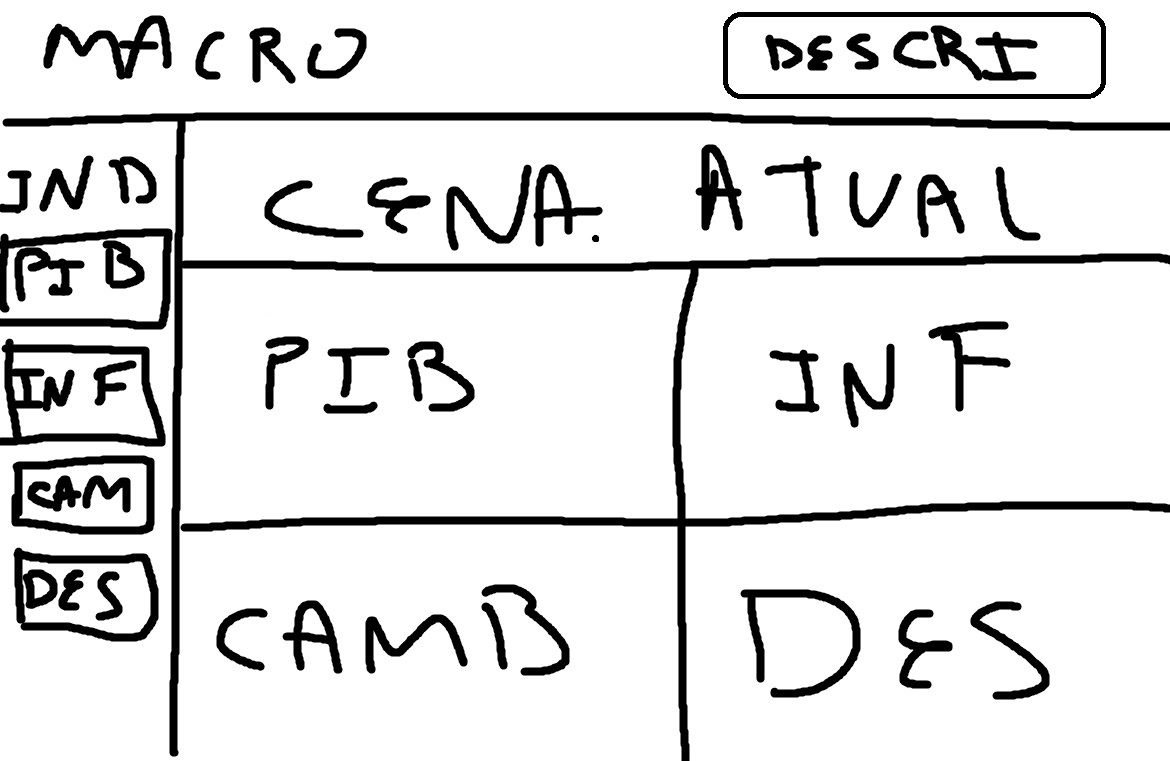 MACRO DESCRI
IND
PIB
INF
CAM
DES
CENA. ATUAL
PIB INF
CAMB DES